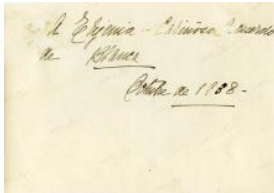 A Efigenia - Cariñoso recuerdo
de Blanca
Octubre de 1938-